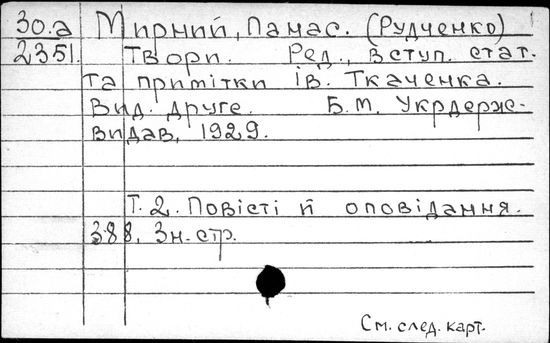 30.а Мирний, Панас. (Рудченко)
2351. Твори. Ред., вступ. стат.
та примітки Ів. Ткаченка.
Вид. друге. Б.М. Укрдерж-
видав, 1929.
Т. 2. Повісті й оповідання.
388, 3н. стр.
См. след. карт.